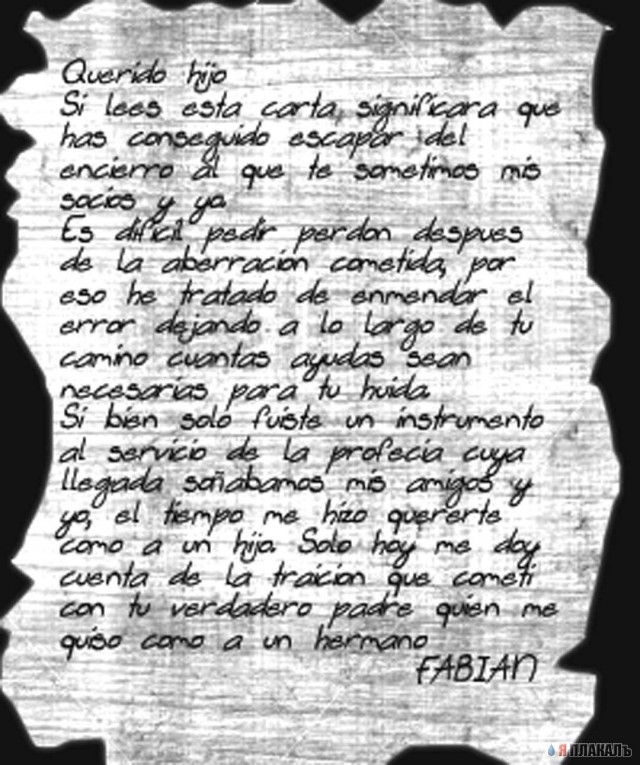 Querido hijo
Si lees esta carta, significara que
has conseguido escapar del
encierro al que te sometimos mis
socios y yo.
Es dificil pedir perdon despues
de la aberracion cometida, por
eso he tratado de enmendar el
error dejando a lo largo de tu
camino cuantas ayudas sean
necesarias para tu huida.
Si bien solo fuiste un instrumento
al servicio de la profecia cuya
llegada soñabamos mis amigos y
yo, el tiempo me hizo quererte
como a un hijo. Solo hoy me doy
cuenta de la traicion que cometi
con tu verdadero padre quien me
quiso como a un hermano
FABIAN
Я ПЛАКАЛЪ